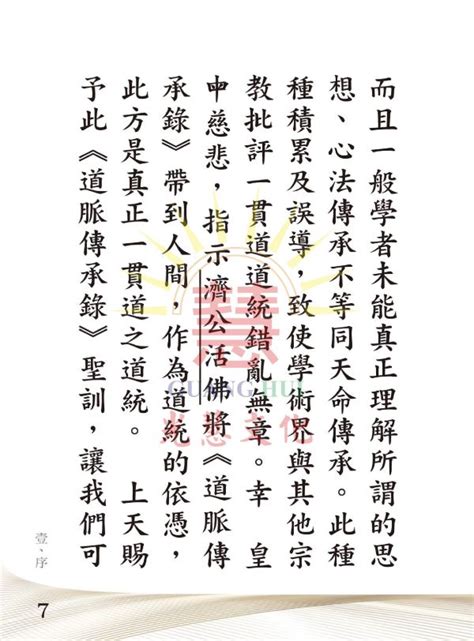 而且一般學者未能真正理解所謂的思
想、心法傳承不等同天命傳承。此種
種積累及誤導，致使學術界與其他宗
教批評一貫道道統錯亂無章。幸　皇
中慈悲，指示濟公活佛將《道脈傳
承錄》帶到人間，作為道統的依憑，
此方是真正一貫道之道統。　上天賜
予此《道脈傳承錄》聖訓，讓我們可
慧
GUANG HUI
光慧文化
壹、序
7